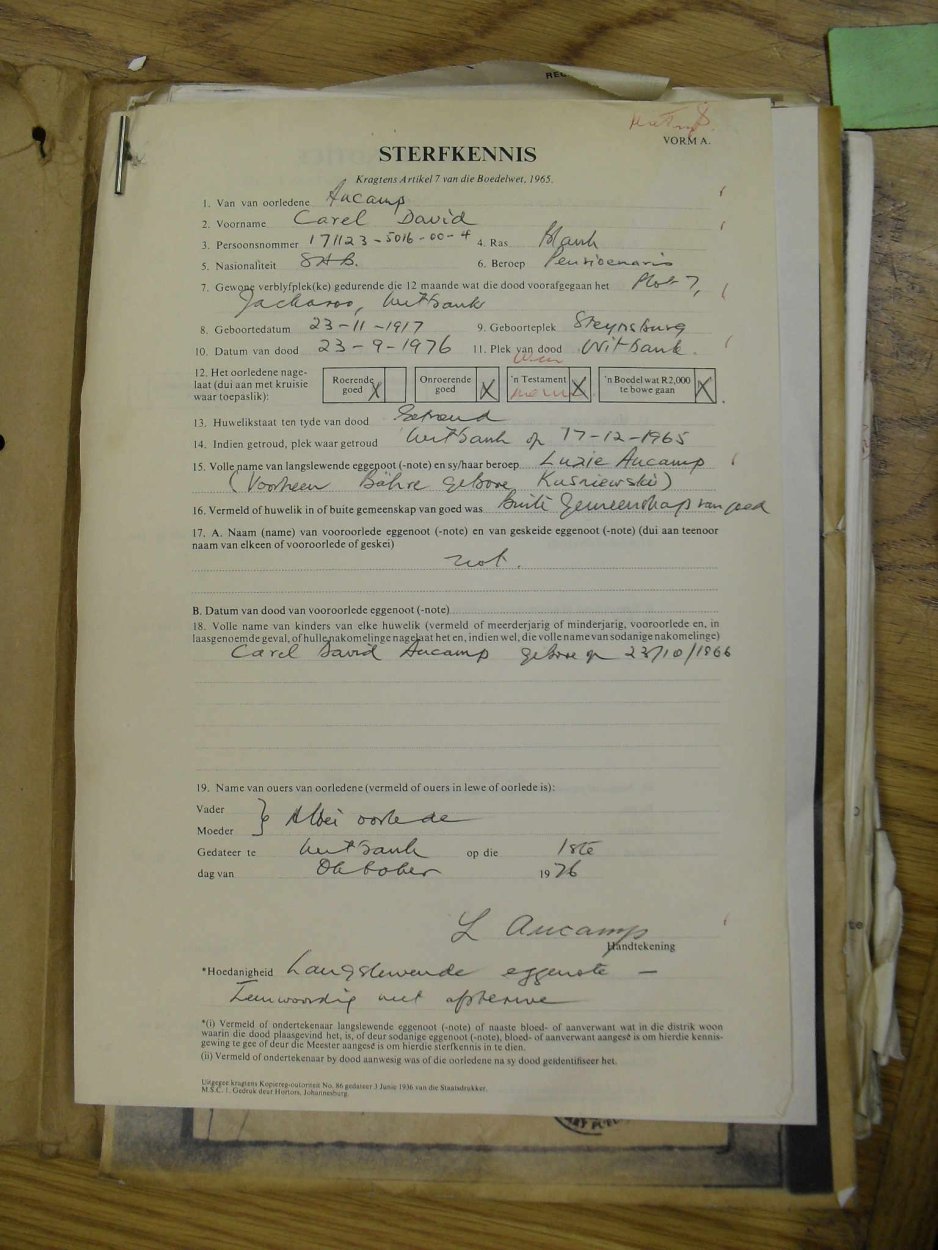 VORM A.
STERFKENNIS
Kragtens Artikel 7 van die Boedelwet, 1965.
1. Van van oorledene Aucamp
2. Voorname Carel David
3. Persoonsnommer 171123-5016-00-4 4. Ras Blank
5. Nasionaliteit S.A.B. 6. Beroep Pensioenaris
7. Gewone verblyfplek(ke) gedurende die 12 maande wat die dood voorafgegaan het Plot 7,
Jackaroo, Witbank
8. Geboortedatum 23-11-1917 9. Geboorteplek Steynsburg
10. Datum van dood 23-9-1976 11. Plek van dood Witbank.
12. Het oorledene nage-
laat (dui aan met kruisie
waar toepaslik):
Roerende
goed X
Onroerende
goed X
'n Testament X
'n Boedel wat R2,000
te bowe gaan X
13. Huwelikstaat ten tyde van dood Getroud
14. Indien getroud, plek waar getroud Witbank op 17-12-1965
15. Volle name van langslewende eggenoot (-note) en sy/haar beroep Luzie Aucamp
(Voorheen Bähre gebore Kusniewski)
16. Vermeld of huwelik in of buite gemeenskap van goed was Buite Gemeenskap van goed
17. A. Naam (name) van vooroorlede eggenoot (-note) en van geskeide eggenoot (-note) (dui aan teenoor
naam van elkeen of vooroorlede of geskei)
B. Datum van dood van vooroorlede eggenoot (-note)
18. Volle name van kinders van elke huwelik (vermeld of meerderjarig of minderjarig, vooroorlede en, in
laasgenoemde geval, of hulle nakomelinge nagelaat het en, indien wel, die volle name van sodanige nakomelinge)
Carel David Aucamp gebore op 23/10/1966
19. Name van ouers van oorledene (vermeld of ouers in lewe of oorlede is):
Vader
Moeder } Albei oorlede
Gedateer te Witbank op die 1ste
dag van Oktober 1976
L Aucamp
Handtekening
*Hoedanigheid Langslewende eggenote –
Teenwoordig met afsterwe
*(i) Vermeld of ondertekenaar langslewende eggenoot (-note) of naaste bloed- of aanverwant wat in die distrik woon
waarin die dood plaasgevind het, is, of deur sodanige eggenoot (-note), bloed- of aanverwant aangesê is om hierdie kennis-
gewing te gee of deur die Meester aangesê is om hierdie sterfkennis in te dien.
(ii) Vermeld of ondertekenaar by dood aanwesig was of die oorledene na sy dood geïdentifiseer het.
Uitgegee kragtens Kopiereg-outoriteit No. 86 gedateer 3 Junie 1936 van die Staatsdrukker.
M.S.C. 1. Gedruk deur Hortors, Johannesburg.